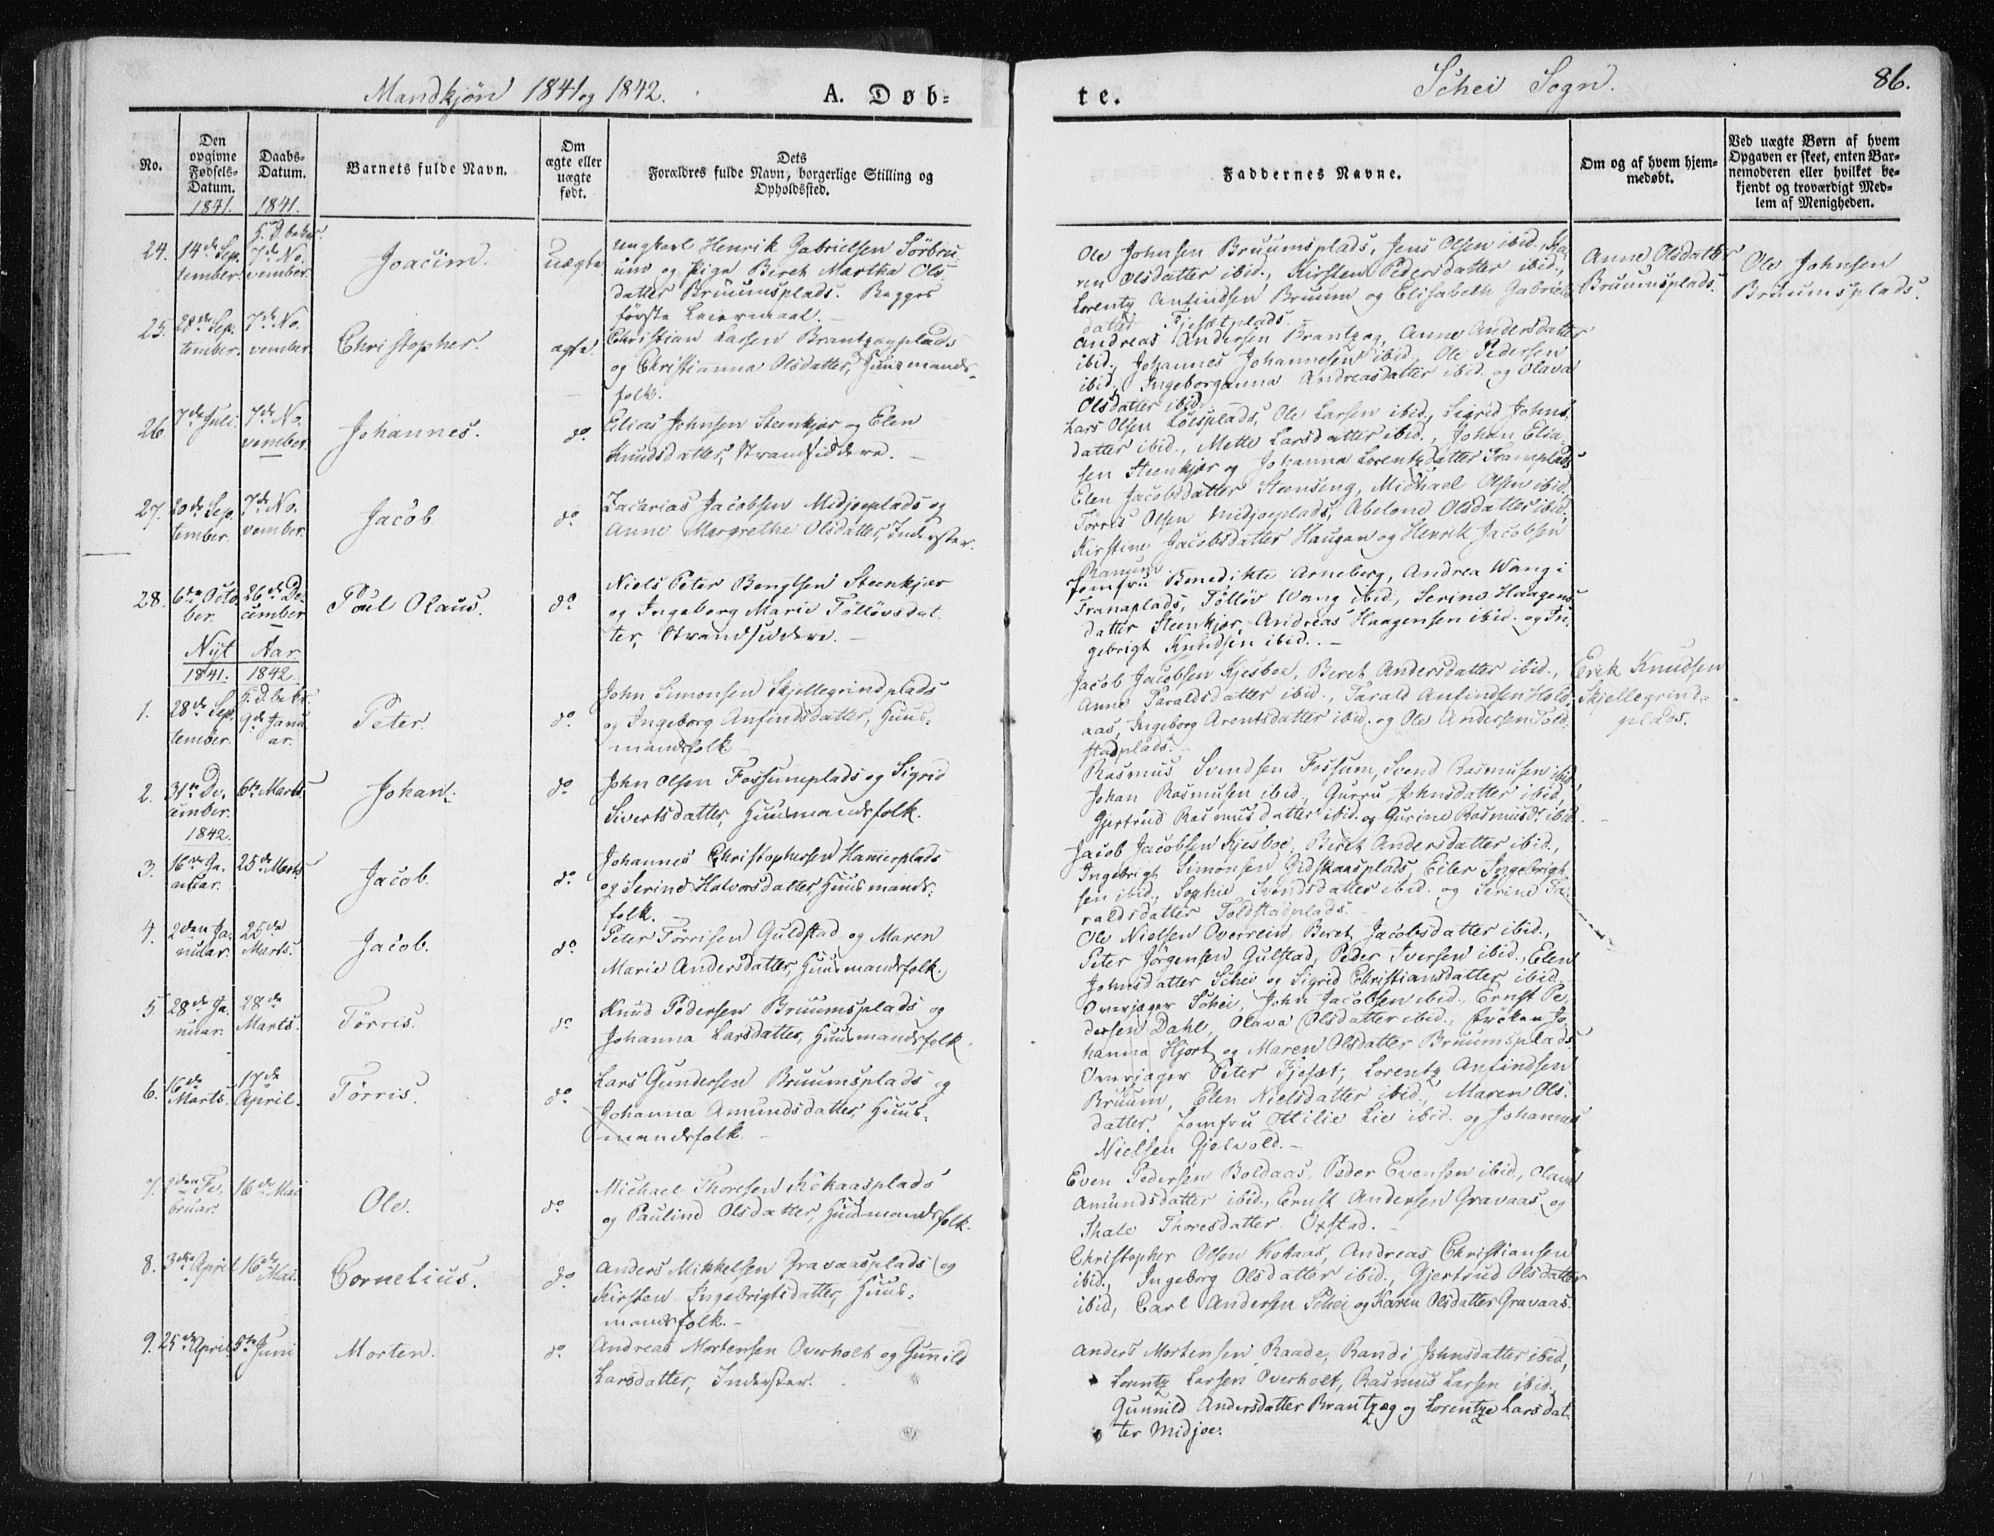 Mandkjøn 1841 og 1842. A. Døb=
te. Schei Sogn. 86.
No.
Den opgivne Fødsels-Datum.
Daabs-Datum.
Barnets fulde Navn.
Om ægte eller uægte født.
Dets Forældres fulde Navn, borgerlige Stilling og Opholdssted.
Faddernes Navne.
Om og af hvem hjem-
medøbt.
Ved uægte Børn af hvem
Opgaven er skeet, enten Bar-
nemoderen eller hvilket be-
kjendt og troværdigt Med-
lem af Menigheden.
1841. 1841.
24. 14de Sep
tember. 7de No.
vember. Joacim. uægte
Ungkarl Henrik Gabrielsen Sörbru
um og Pige Beret Martha Ols
datter Bruumsplads. Begges
første Leiermaal.
Ole Johnsen Bruumsplads, Jens Olsen ibid., Ka
ren Olsdatter ibid., Kirsten Pedersdatter ibid.,
Lorentz Anfindsen Bruum og Elisabeth Gabriels
datter Fjesætplads.
Anne Olsdatter
Bruumsplads.
Ole Johnsen
Bruumsplads.
25. 28de Sep.
tember. 7de No.
vember. Christopher. ægte.
Christian Larsen Brantzægplads
og Christianna Olsdatter, Huusmands-
folk.
Andreas Andersen Brantzæg, Anne Andersdatter
ibid., Johannes Johannesen ibid., Ole Pedersen
ibid., Ingeborganna Andreasdatter ibid. og Olava
Olsdatter ibid.
26. 7de Juli. 7de No.
vember. Johannes. do
Elias Johnsen Steenkjær og Elen
Knudsdatter, Strandsiddere.
Lars Olsen Löesplads, Ole Larsen ibid., Sigrid Johns
datter ibid., Mette Larsdatter ibid., Johan Elia-
sen Steenkjær og Johanna Lorentzdatter Tranaplads
27. 20de Sep.
tember. 7de No.
vember. Jacob. do
Zacharias Jacobsen Midjoeplads og
Anne Margrethe Olsdatter, Inderster.
Elen Jacobsdatter Steenseng, Michael Olsen ibid.
Törris Olsen Midjoeplads, Abelone Olsdatter ibid.
Kirstine Jacobsdatter Haugan og Henrik Jacobsen
Ranum
28. 6te Octo
ber. 26de De-
cember Poul Olaus. do
Niels Peter Bengtsen Steenkjær
og Ingeborg Marie Tölløvsdat-
ter, Strandsiddere.
Jomfru Benedikte Arneberg, Andrea Wang i
Tranaplads, Tölløv Wang ibid., Serine Haagens
datter Steenkjær, Andreas Haagensen ibid. og In
gebrigt Knudsen ibid.
Nyt Aar
1841. 1842.
1. 28de Sep.
tember. 9de Janu
ar. Peter. do
John Simonsen Skjellegrindplads
og Ingeborg Anfindsdatter, Huus-
mandsfolk
Jacob Jacobsen Kjesboe, Beret Andersdatter ibid.,
Anne Taraldsdatter ibid., Tarald Anfindsen Hold-
aas, Ingeborg Arentsdatter ibid. og Ole Andersen Told-
stadplads.
Erik Knudsen
Skjellegrind-
plads.
2. 31te De.
cember. 6te Marts. Johan. do
John Olsen Fossumplads og Sigrid
Sivertsdatter, Huusmandsfolk.
Rasmus Svendsen Fossum, Svend Rasmusen ibid
Johan Rasmusen ibid, Gurru Johnsdatter ibid,
Gjertrud Rasmusdatter ibid. og Gurine Rasmusdt. ibid.
1842.
3. 16de Ja-
nuar. 25de Marts Jacob. do
Johannes Christophersen Hammerplads
og Serine Halvorsdatter, Huusmands-
folk.
Jacob Jacobsen Kjesboe, Beret Andersdatter ibid.,
Ingebrigt Simonsen Gidskaasplads, Eiler Ingebrigt-
sen ibid., Sophie Svendsdatter ibid. og Serine Ta-
raldsdatter Toldstadplads.
4. 2den Ja-
nuar. 25de
Marts. Jacob. do
Peter Törrisen Guldstad og Maren
Marie Andersdatter, Huusmandsfolk.
Ole Nielsen Overrein, Beret Jacobsdatter ibid.,
Peter Jörgensen Gulstad, Peder Iversen ibid., Elen
Johnsdatter Schei og Sigrid Christiansdatter ibid.
5 28de Ja-
nuar. 28de
Marts. Törris. do
Knud Pedersen Bruumsplads og
Johanna Larsdatter, Huusmandsfolk.
Overjæger Schei, John Jacobsen ibid., Ernst Pe-
dersen Dahl, Olava Olsdatter ibid., Fröken Jo-
hanna Hjort og Maren Olsdatter Bruumsplads
6. 16de
Marts. 17de
April. Törris. do
Lars Gundersen Bruumsplads og
Johanna Amundsdatter, Huus-
mandsfolk.
Overjæger Peter Fjesæt, Lorentz Anfindsen
Bruum, Elen Nielsdatter ibid., Maren Ols-
datter, Jomfru Ottilie Lie ibid. og Johannes
Nielsen Gjelvold.
7. 2den Fe-
bruar. 16de Mai Ole. do
Michael Thoresen Kokaasplads
og Pauline Olsdatter, Huusmandsfolk.
Even Pedersen Boldaas, Peder Evensen ibid., Olava
Amundsdatter ibid., Ernst Andersen Gravaas og
Thale Thoresdatter Öxstad.
8. 3die April 16de
Mai. Cornelius. do
Anders Mikkelsen Gravaasplads og
Kirsten Ingebrigtsdatter, Huus-
mandsfolk.
Christopher Olsen Kokaas, Andreas Christiansen
ibid., Ingeborg Olsdatter ibid., Gjertrud Olsdatter
ibid, Carl Andersen Schei og Karen Olsdatter Gravaas.
9. 25de April 5te Juni Morten. do
Andreas Mortensen Overholt og Gunild
Larsdatter, Inderster.
Anders Mortensen Raade, Randi Johnsdatter ibid,
Lorentz Larsen Overholt, Rasmus Larsen ibid.
Gunnild Andersdatter Brantzæg og Lorentze Larsdat-
ter Midjoe.